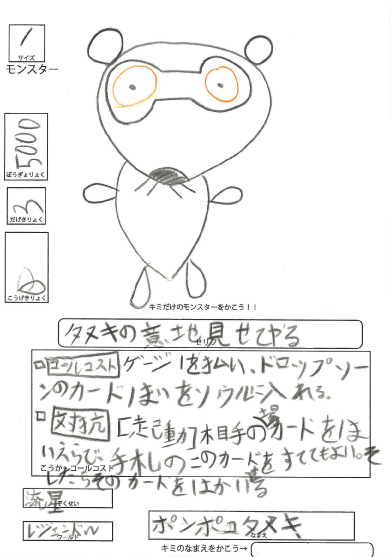 1
サイズ
モンスター
5000
ぼうぎょりょく
3
だげきりょく
こうげきりょく
キミだけのモンスターをかこう！！
タヌキの意地見せてやる
せりふ
□コールコスト ゲージ1を払い、ドロップゾー
ンのカード1まいをソウルに入れる。
□対抗 [起動] 相手の場のカードを1ま
いえらび、手札のこのカードをすててもよい。そ
こうか・コールコスト
したらそのカードをはかいする
流星
ぞくせい
レジェンドW
ワールド
ポンポコタヌキ
なまえ
キミのなまえをかこう→